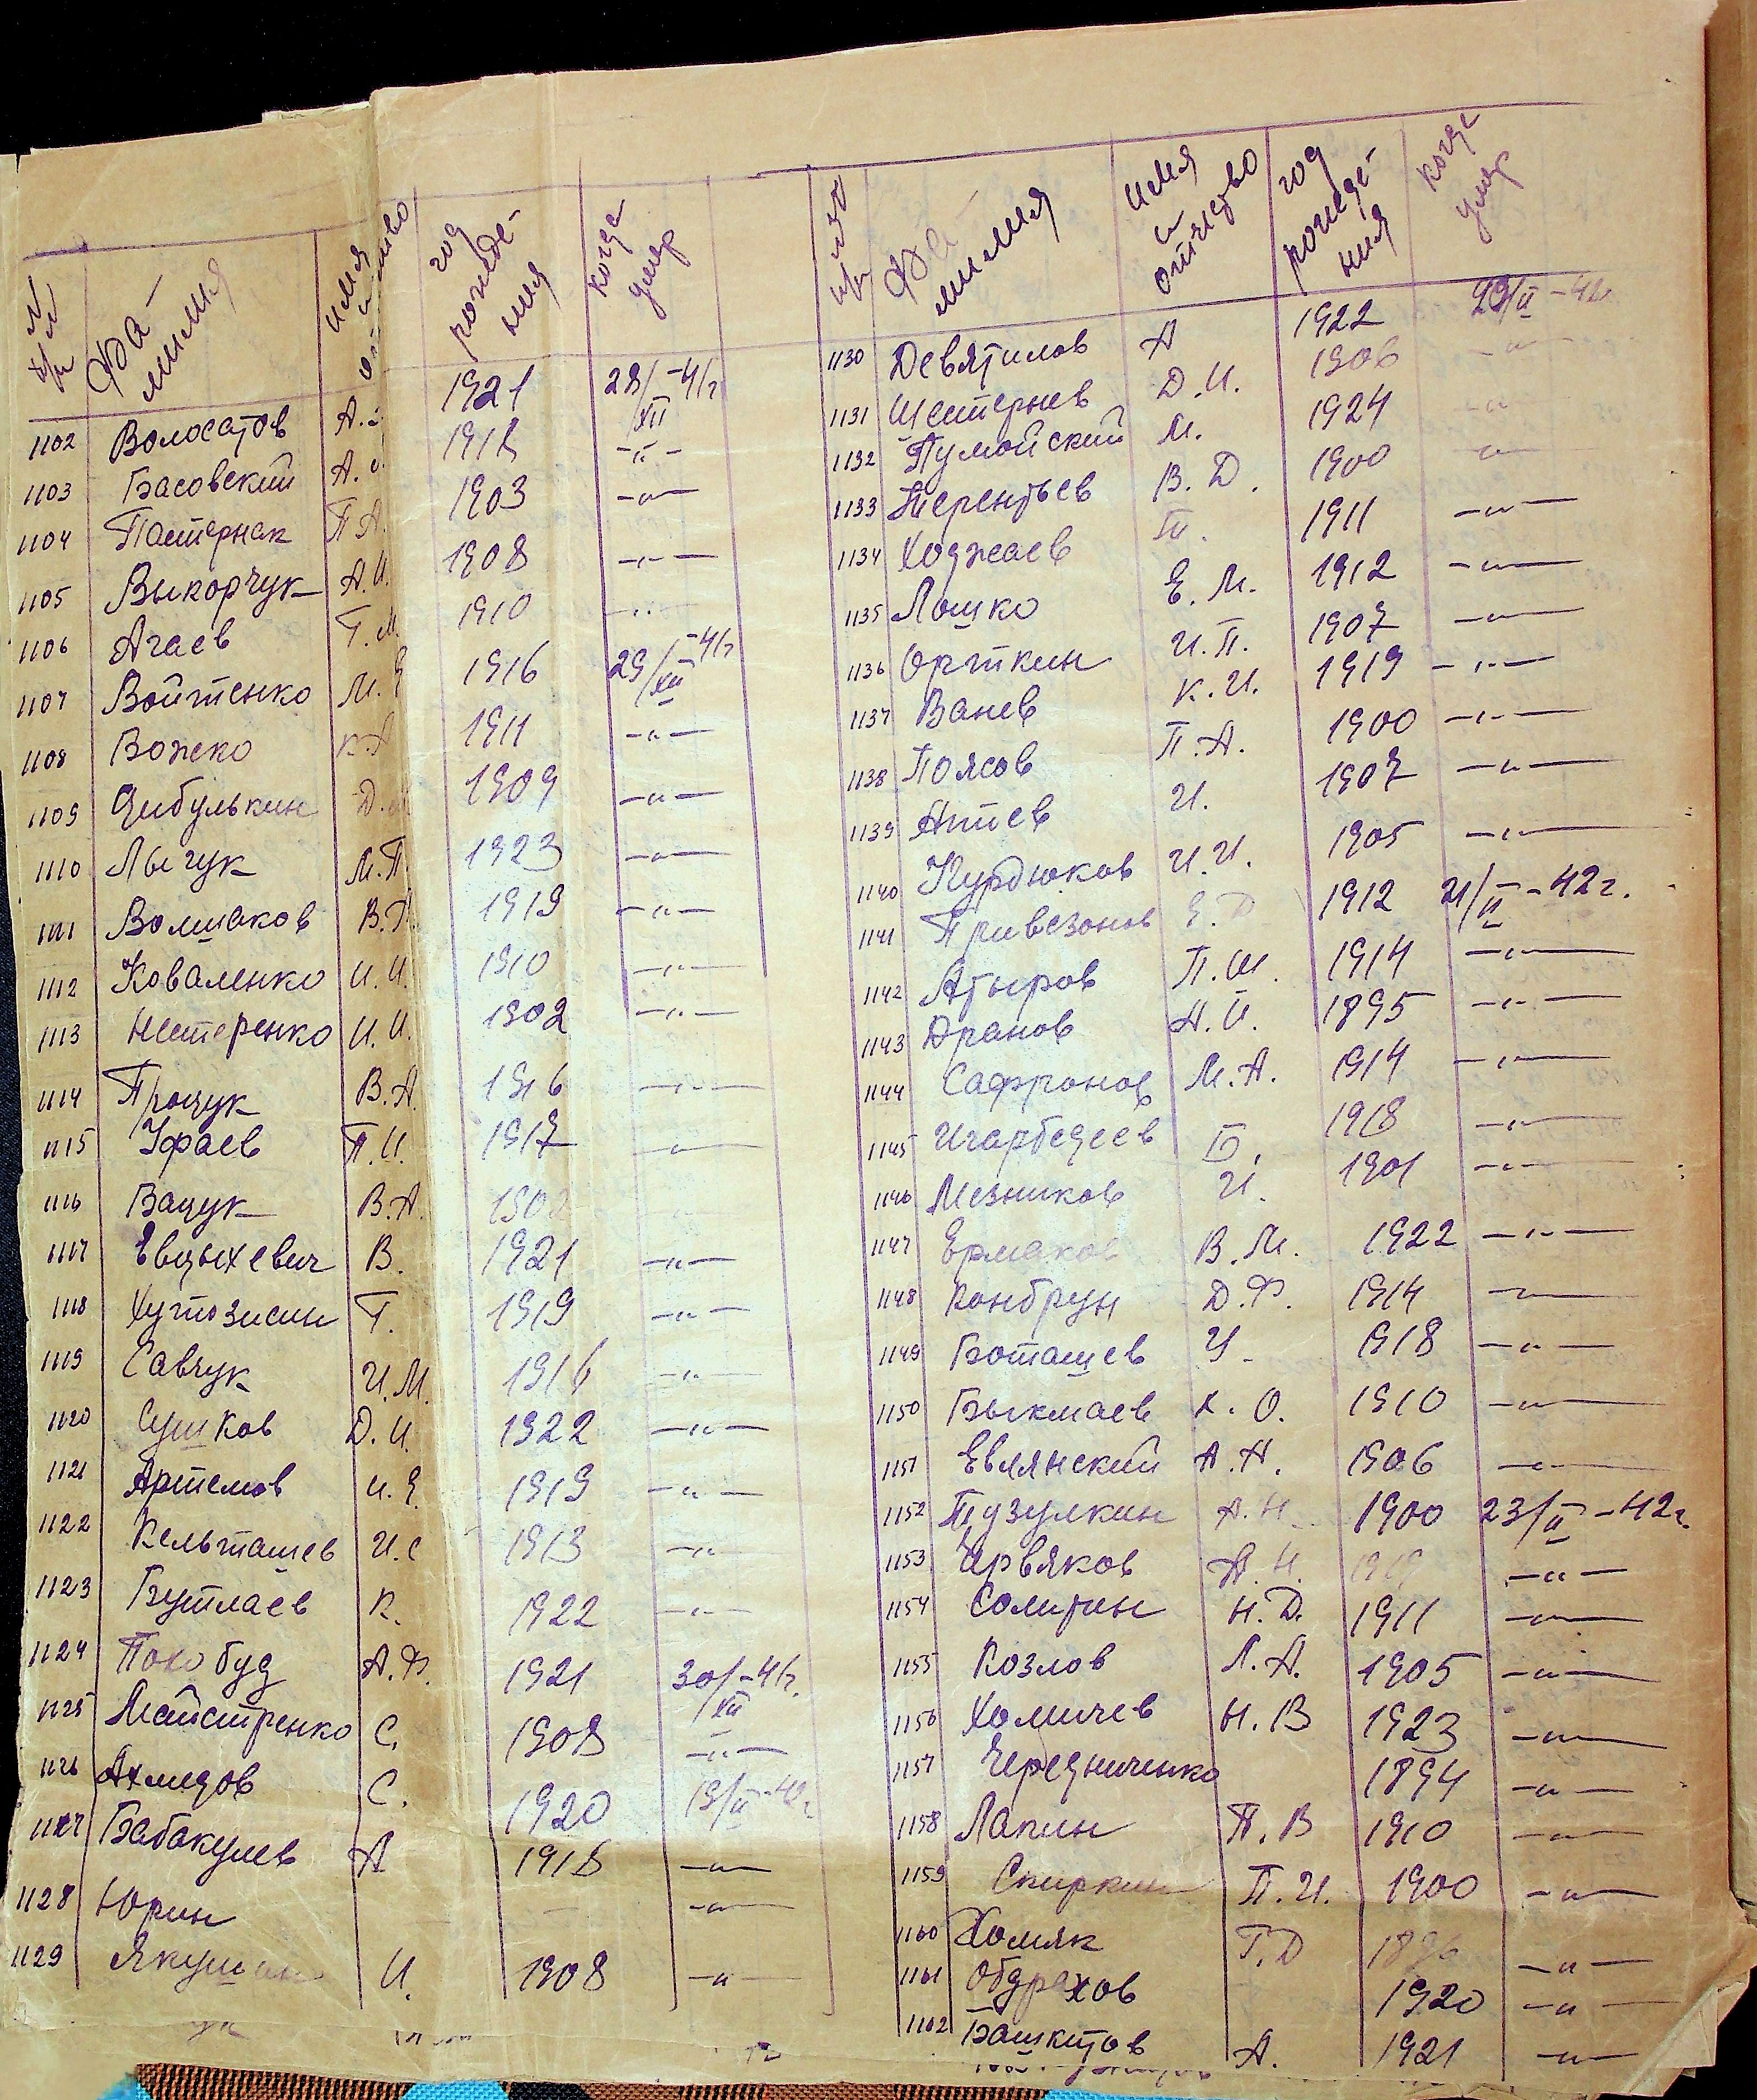 №№ п/п Фамилия имя и отчество год рождения когда умер
1102 Волосатов А. 1921 28/XII-41г
1103 Басовский А. 1918 -"-
1104 Пастернак П.А. 1903 -"-
1105 Выкорчук А.И. 1908 -"-
1106 Агаев Г.М. 1910 -"-
1107 Войтенко М. 1916 29/XII-41г
1108 Божко К.А 1911 -"-
1109 Цибулькин Д. 1909 -"-
1110 Лычук М.П 1923 -"-
1111 Волшаков В. 1919 -"-
1112 Коваленко И.И. 1910 -"-
1113 Нестеренко И.И. 1902 -"-
1114 Процук В.А. 1916 -"-
1115 Уфаев П.И. 1917 -"-
1116 Вацук В.А. 1902
1117 Евцыхевич В. 1921 -"-
1118 Хутозисин Г. 1919 -"-
1119 Савчук И.М. 1916 -"-
1120 Сушков Д.И. 1922 -"-
1121 Артемов И.Е. 1919 -"-
1122 Кельташев И.С 1913 -"-
1123 Бутлаев К. 1922 -"-
1124 Покобуд А.Ф. 1921 30/XII-41г.
1125 Майстренко С. 1908 -"-
1126 Ахмедов С. 1920 19/II-42г
1127 Бабакулев А 1918 -"-
1128 Юрин -"-
1129 И. 1908 -"-
№№ п/п Фамилия имя и отчество год рождения когда умер
1130 Девятилов А 1922 29/II-42г
1131 Шестернев Д.И. 1906 -"-
1132 Пумойский М. 1924 -"-
1133 Терентьев В.Д. 1900 -"-
1134 Ходжаев Т. 1911 -"-
1135 Лошко Е.М. 1912 -"-
1136 Орткин И.П. 1907 -"-
1137 Ванев К.И. 1919 -"-
1138 Поясов П.А. 1900 -"-
1139 Аптев И. 1907 -"-
1140 Курдюков И.И. 1905 -"-
1141 Привезонов Е.Д 1912 21/II-42г.
1142 Атыров П.Ш. 1914 -"-
1143 Дранов А.И. 1895 -"-
1144 Сафронов М.А. 1914 -"-
1145 Игарбедеев Б. 1918 -"-
1146 Мезников И. 1901 -"-
1147 Ермаков В.М. 1922 -"-
1148 Конбрун Д.Ф. 1914 -"-
1149 Боташев У. 1918 -"-
1150 Быкмаев К.О. 1910 -"-
1151 Евлянский А.Н. 1906 -"-
1152 Тузулкин А.Н. 1900 23/II-42г.
1153 Червяков А.Н. -"-
1154 Солитин Н.Д. 1911 -"-
1155 Козлов Л.А. 1905 -"-
1156 Хомичев Н.В 1923 -"-
1157 Чередниченко 1894 -"-
1158 Лапин П.В 1910 -"-
1159 Спиркин П.И. 1900 -"-
1160 Хомяк Г.Д 1896 -"-
1161 Обдрахов 1920 -"-
1162 Башкитов А. 1921 -"-